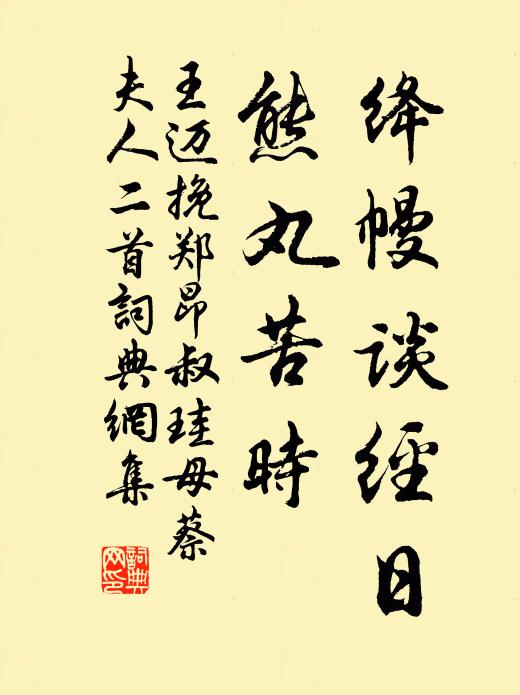 绛幔谈經日
熊丸苦時
王迈挽郑昂叔珪母蔡
夫人二首詞典網集
詞典
网印